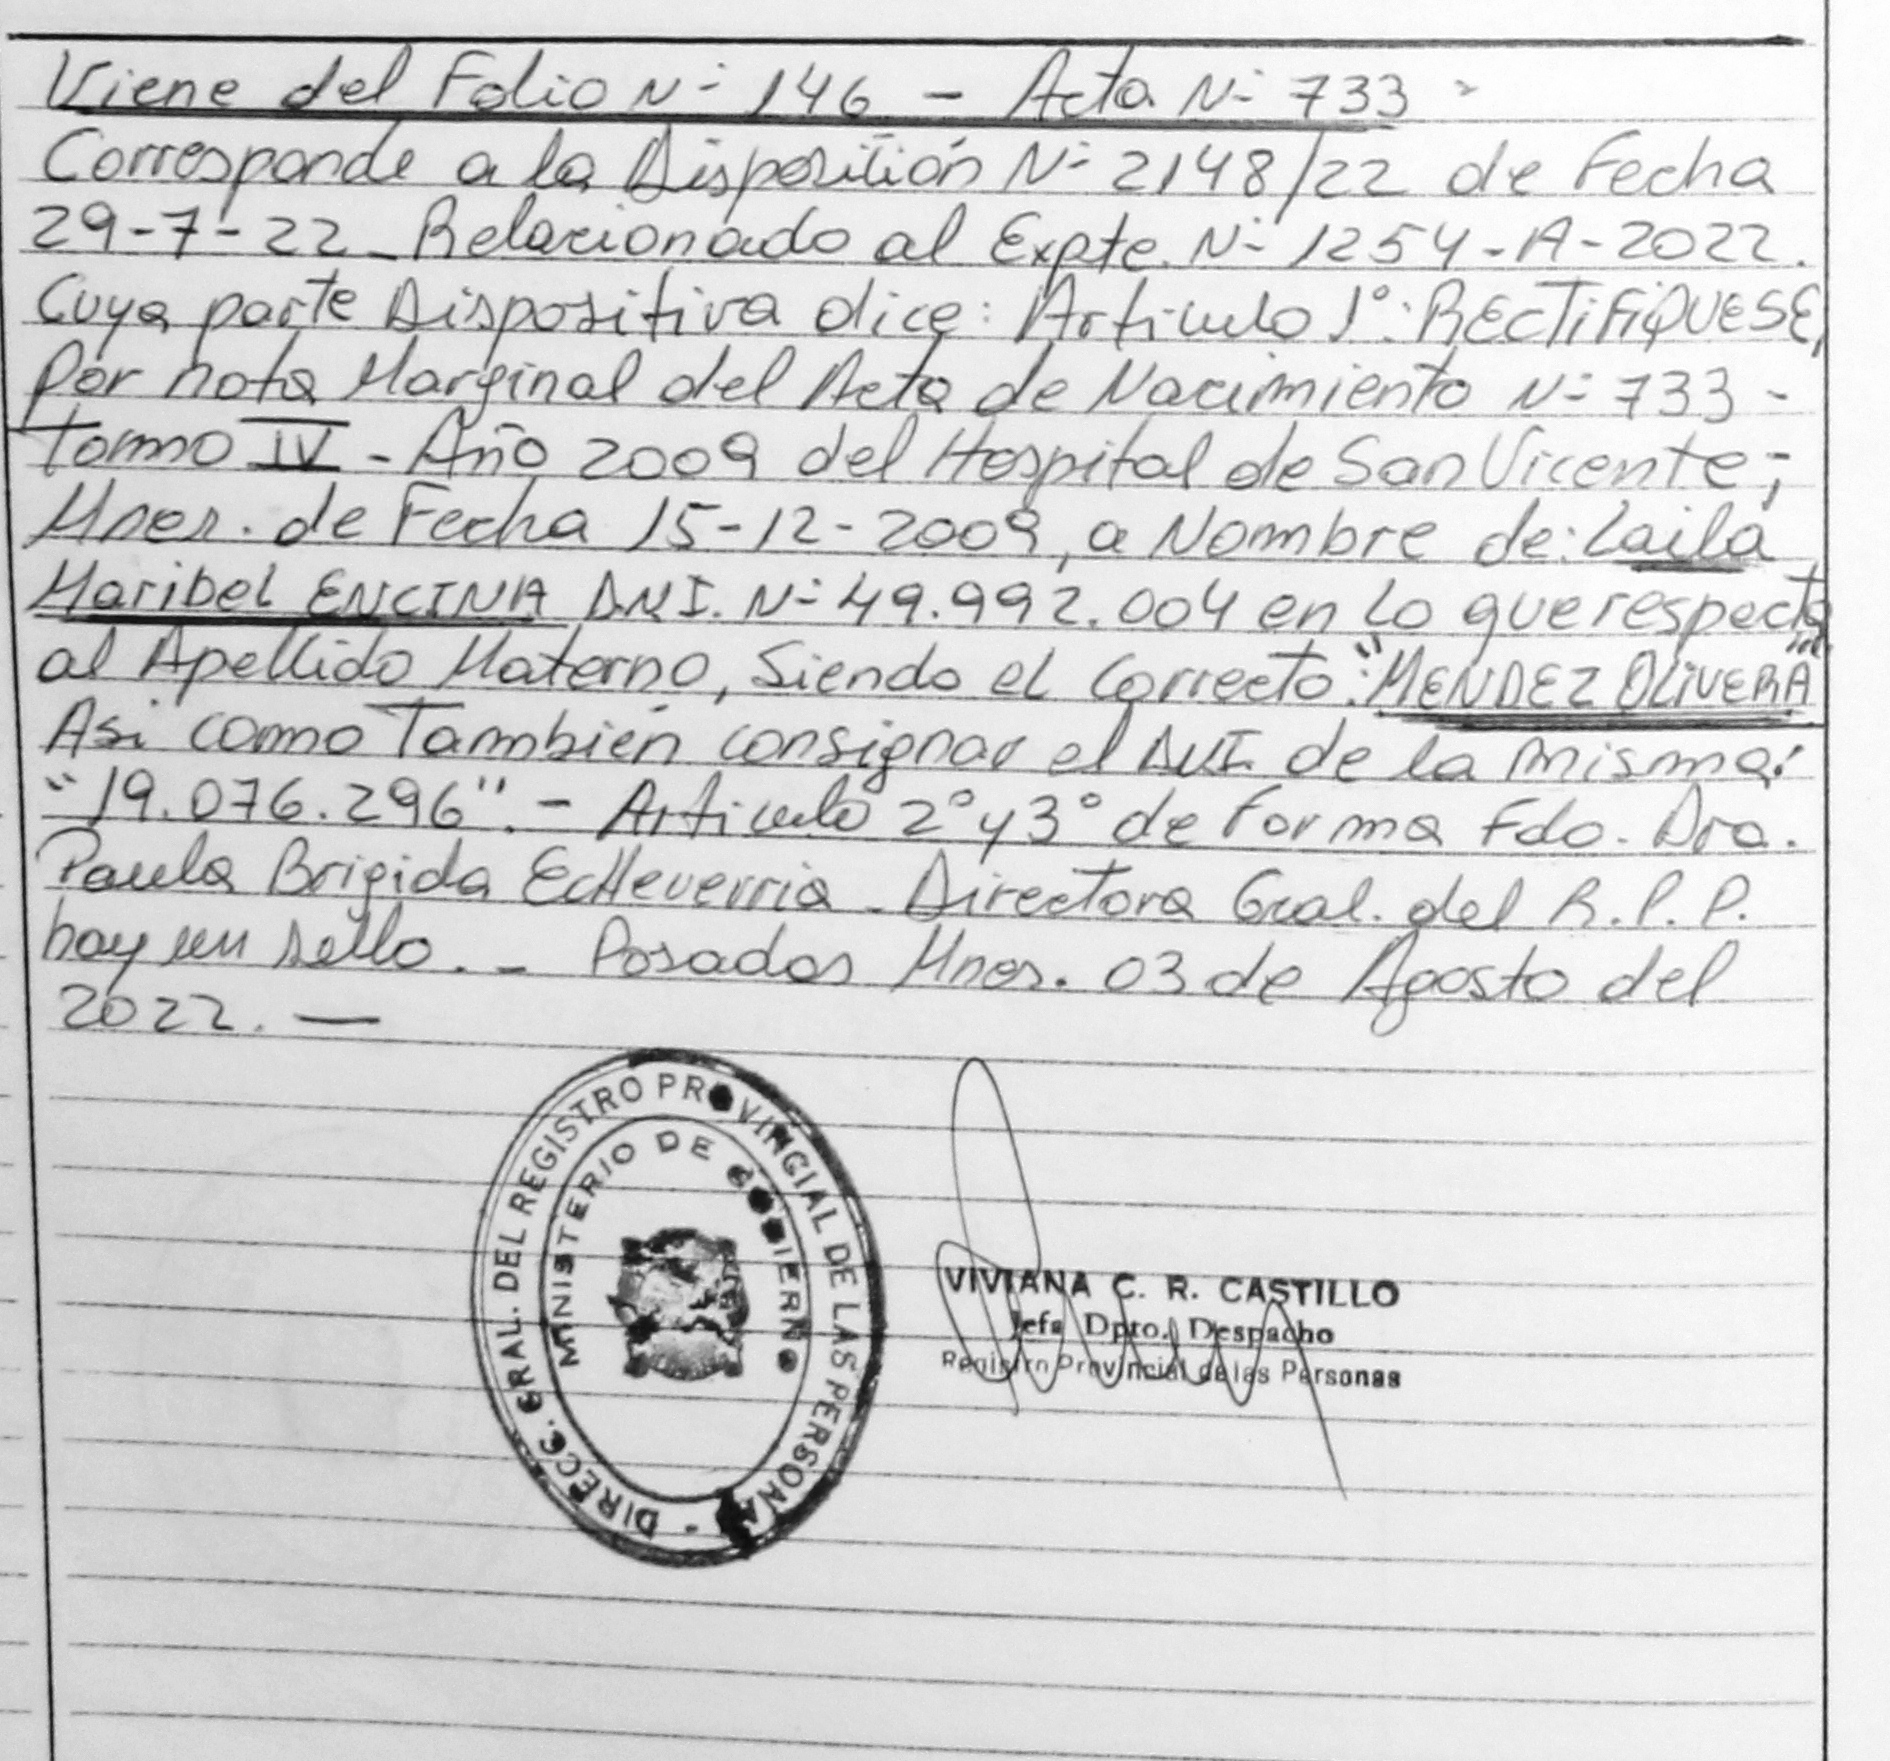 Viene del Folio N° 146 - Acta N° 733 -
Corresponde a la Disposición N° 2148/22 de Fecha
29-7-22 - Relacionado al Expte. N° 1254-A-2022.
Cuya parte Dispositiva dice: Articulo 1°: RECTIFIQUESE,
Por nota Marginal del Acta de Nacimiento N° 733 -
Tomo IV - Año 2009 del Hospital de San Vicente;
Mnes. de Fecha 15-12-2009, a Nombre de: Laila
Maribel ENCINA DNI. N° 49.992.004 en lo que respecta
al Apellido Materno, Siendo el Correcto: "MENDEZ OLIVERA"
Asi como También consignar el DNI. de la misma:
"19.076.296". - Articulo 2° y 3° de Forma Fdo. Dra.
Paula Brigida Echeverria - Directora Gral. del R.P.P.
hay un sello. - Posadas Mnes. 03 de Agosto del
2022. —
DIRECC. GRAL. DEL REGISTRO PROVINCIAL DE LAS PERSONAS -
MINISTERIO DE GOBIERNO
VIVIANA C. R. CASTILLO
Jefa Dpto. Despacho
Registro Provincial de las Personas